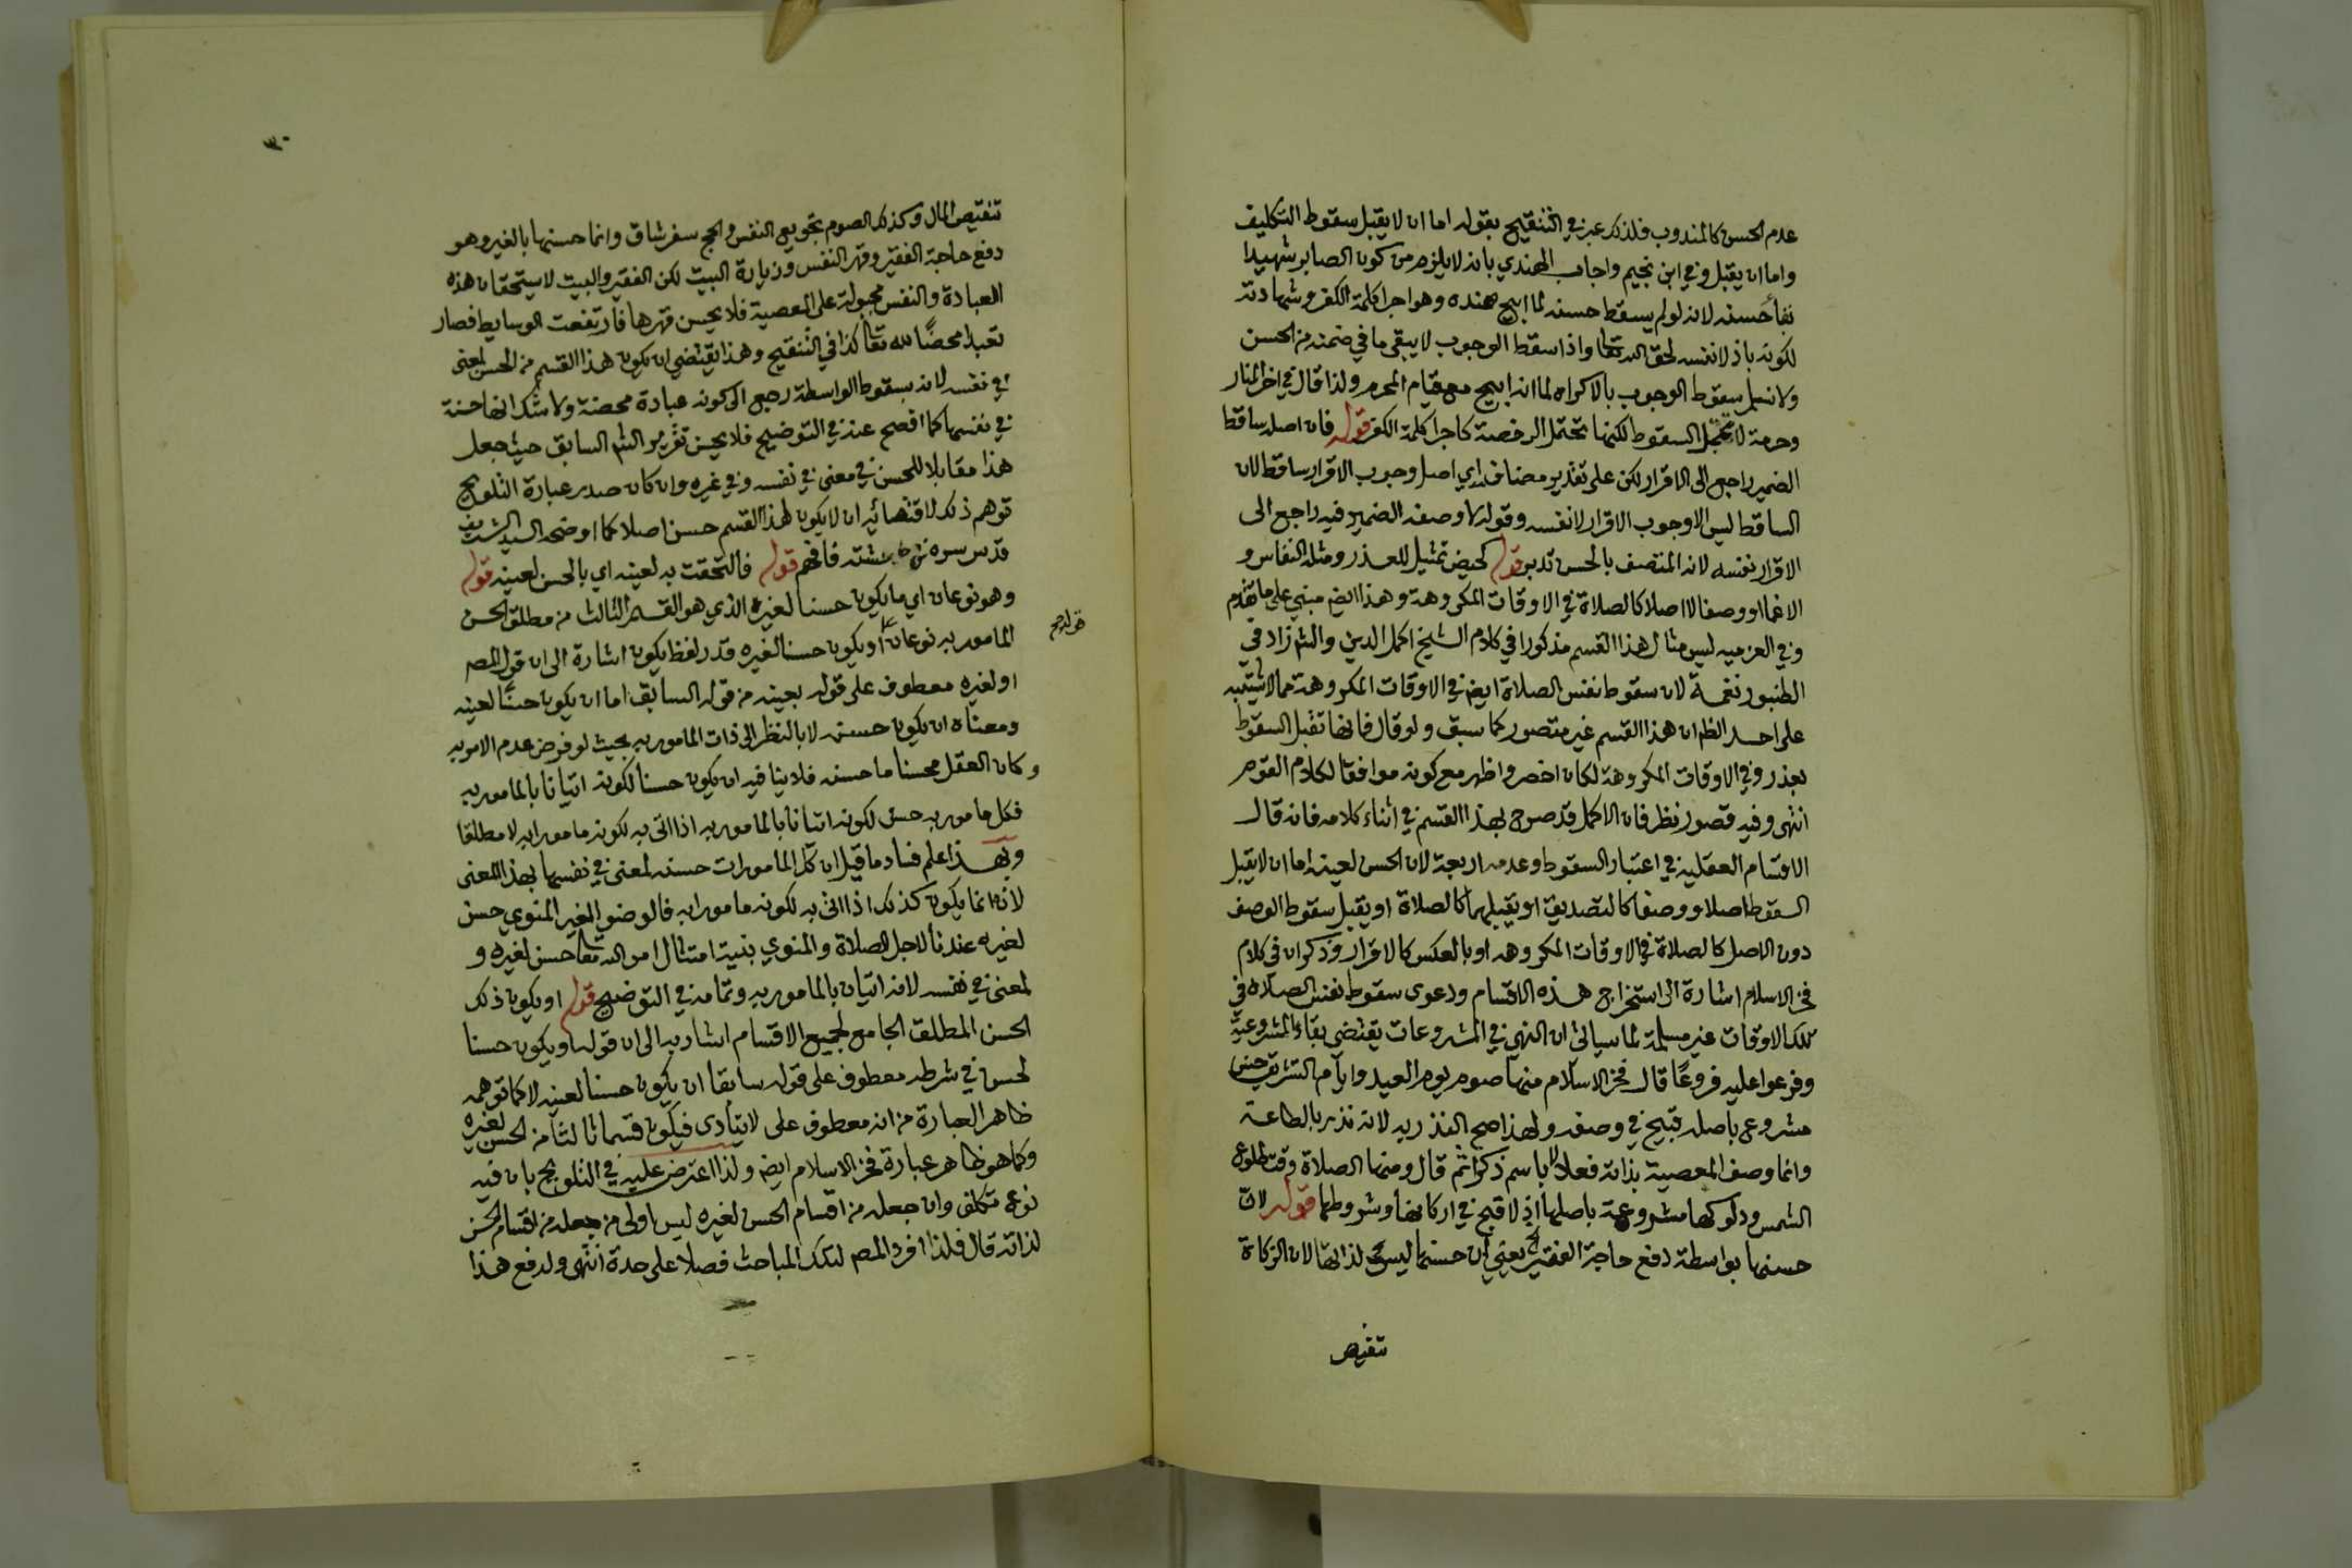 عدم الحسن كالمندوب فلذلك عبر في التنقيح بقوله اما ان لا يقبل سقوط التكليف
واما ان يقبل وفي ابن نجيم واجاب الهندي بانه لا يلزم من كون الصابر شهيدا
بقا حسنه لانه لو لم يسقط حسنه لما ابيح ضده وهو اجرا كلمة الكفر وشهادته
لكونه باذلا نفسه لحق الله تعالى واذا سقط الوجوب لا يبقى ما في ضمنه من الحسن
ولا نسلم سقوط الوجوب بالاكراه لما انه ابيح مع قيام المحرم ولذا قال في اخر المنار
وحرمة لا تحتمل السقوط لكنها تحتمل الرخصة كاجرا كلمة الكفر قوله فان اصله ساقط
الضمير راجع الى الاقرار لكن على تقدير مضاف اي اصل وجوب الاقرار ساقط لان
الساقط ليس الا وجوب الاقرار لا نفسه وقوله لا وصفه الضمير فيه راجع الى
الاقرار نفسه لانه المتصف بالحسن تدبر قوله كحيض تمثيل للعذر ومثله النفاس و
الاغما او وصفا لا اصلا كالصلاة في الاوقات المكروهة وهذا ايض مبني على ما تقدم
وفي العزميه ليس مثال هذا القسم مذكورا في كلام الشيخ اكمل الدين والشم زاد في
الطنبور نغمة لان سقوط نفس الصلاة ايض في الاوقات المكروهة مما لا يشتبه
على احد الظ ان هذا القسم غير متصور كما سبق ولو قال فانها تقبل السقوط
بعذر وفي الاوقات المكروهة لكان اخصر واظهر مع كونه موافقا لكلام القوم
انتهى وفيه قصور نظر فان الاكمل قد صرح بهذا القسم في اثناء كلامه فانه قال
الاقسام العقليه في اعتبار السقوط وعدمه اربعة لان الحسن لعينه اما ان لا يقبل
السقوط اصلا ووصفا كالتصديق او يقبلهما كالصلاة او يقبل سقوط الوصف
دون الاصل كالصلاة في الاوقات المكروهه او بالعكس كالاقرار وذكر ان في كلام
فخر الاسلام اشارة الى استخراج هذه الاقسام ودعوى سقوط نفس الصلاة في
تلك الاوقات غير مسلمة لما سياتي ان النهي في المشروعات يقتضي بقاء المشروعية
وفرعوا عليه فروعا قال فخر الاسلام منها صوم يوم العيد وايام التشريق حسن
مشروع باصله قبيح في وصفه ولهذا صح النذر به لانه نذر بالطاعة
وانما وصف المعصية بذاته فعلا لا باسم ذكرا ثم قال ومنها الصلاة وقت طلوع
الشمس ودلوكها مشروعة باصلها اذ لا قبح في اركانها وشروطها قوله لان
حسنها بواسطة دفع حاجة الفقير يعني ان حسنها ليس لذاتها لان الزكاة
تنقيص
٣٠
تنقيص المال وكذلك الصوم تجويع النفس والحج سفر شاق وانما حسنها بالغير وهو
دفع حاجة الفقير وقهر النفس وزيارة البيت لكن الفقير والبيت لا يستحقان هذه
العبادة والنفس مجبولة على المعصية فلا يحسن قهرها فارتفعت الوسايط فصار
تعبدا محضا لله تعالى كذا في التنقيح وهذا يقتضي ان يكون هذا القسم من الحسن لمعنى
في نفسه لانه بسقوط الواسطة رجع الى كونه عبادة محضة ولا شك انها حسنة
في نفسها كما افصح عنه في التوضيح فلا يحسن تقرير الشم السابق حيث جعل
هذا مقابلا للحسن في معنى في نفسه وفي غيره وان كان صدر عبارة التلويح
توهم ذلك لاقتضائه ان لا يكون لهذا القسم حسن اصلا كما اوضحه السيد الشريف
قدس سره في حاشيته فافهم قوله فالتحقت به لعينه اي بالحسن لعينه قوله
وهو نوعان اي ما يكون حسنا لغيره الذي هو القسم الثالث من مطلق الحسن
المامور به نوعان او يكون حسنا لغيره قدر لفظ يكون اشارة الى ان قول المص
او لغيره معطوف على قوله بعينه من قوله السابق اما ان يكون حسنا لعينه
ومعناه ان يكون حسنه لا بالنظر الى ذات المامور به بحيث لو فرض عدم الامر به
وكان العقل محسنا ما حسنه فلا ينافيه ان يكون حسنا لكونه اتيانا بالمامور به
فكل مامور به حسن لكونه اتيانا بالمامور به اذا اتى به لكونه مامورا به لا مطلقا
وبهذا علم فساد ما قيل ان كل المامورات حسنه لمعنى في نفسها بهذا المعنى
لانه انما يكون كذلك اذا اتى به لكونه مامورا به فالوضو الغير المنوي حسن
لغيره عندنا لاجل الصلاة والمنوي بنية امتثال امر الله تعالى حسن لغيره و
لمعنى في نفسه لانه اتيان بالمامور به وتمامه في التوضيح قوله او يكون ذلك
الحسن المطلق الجامع لجميع الاقسام اشار به الى ان قوله او يكون حسنا
لحسن في شرطه معطوف على قوله سابقا ان يكون حسنا لعينه لا كما توهمه
ظاهر العبارة من انه معطوف على لا يتأدى فيكون قسما ثالثا من الحسن لغيره
وكما هو ظاهر عبارة فخر الاسلام ايض ولذا اعترض عليه في التلويح بان فيه
نوع تكلف وان جعله من اقسام الحسن لغيره ليس اولى من جعله من اقسام الحسن
لذاته قال فلذا افرد المص لتلك المباحث فصلا على حدة انتهى ولدفع هذا